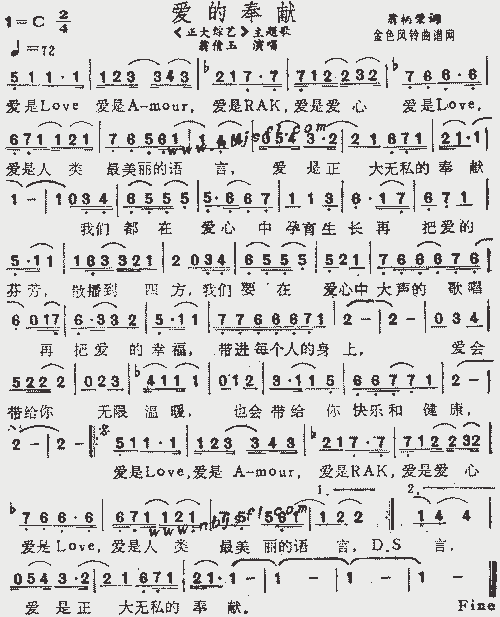 爱的奉献
1=C 2/4
《正大综艺》主题歌
♩=72
翁倩玉 演唱
金色风铃曲谱网
5 1 1·1 | 1 2 3 3 4 3 | ♭2 1 7·7 | 7 1 2 2 3 2 | ♭7 6 6·6
爱是Love 爱是A-mour, 爱是RAK,爱是爱 心 爱是Love,
6 7 1 1 2 1 | 7 6 5 6 1 | 0 5 4 3·2 | 2 1 6 7 1 | 2 1·1
爱是人 类 最美丽的语 言, 爱 是正 大无私的 奉献
1 - | 1 0 3 4 | 6 5 5 5 | 5·6 6 7 | 1 1 3 | 6·1 7 | 6 7 1
我们 都 在 爱心 中 孕育生 长 再 把爱的
5·1 1 | 1 6 3 3 2 1 | 2 0 3 4 | 5 0 5 5 | 5 2 1 | 7 6 6 7 6 7
芬芳, 散播到 四 方,我们 要 在 爱心中 大声的 歌唱
6 0 1 7 | 6·3 3 2 | 5·1 1 | 7 7 6 6 6 7 1 | 2 - | 2 - | 0 3 4
再 把爱 的幸福, 带进每个人的身 上, 爱会
5 2 2 2 | 0 2 3 | ♭4 1 1 1 | 0 1 2 | 3·1 1 5 | 6 6 7 7 1 | 2 -
带给你 无限 温 暖, 也会 带给 你 快乐和 健 康,
2 - | 2 - 5 1 1·1 | 1 2 3 3 4 3 | ♭2 1 7·7 | 7 1 2 2 3 2
爱是Love,爱是 A-mour, 爱是RAK,爱是爱心
1. 2.
♭7 6 6·6 | 6 7 1 1 2 1 | 1 2 2 1 4
爱是Love,爱是人 类 最美 丽的语 言,D.S 言,
0 5 4 3·2 | 2 1 6 7 1 | 2 1·1 - | 1 - | 1 - | 1 -
爱 是正 大无私的 奉 献. Fine